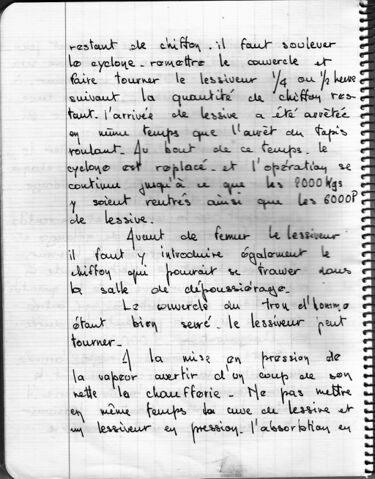 restant de chiffon. il faut soulever
le cyclone. remettre le couvercle et
faire tourner le lessiveur 1/4 ou 1/2 heure
suivant la quantité de chiffon res-
tant. l'arrivée de lessive a été arrêtée
en même temps que l'arrêt du tapis
roulant. Au bout de ce temps. le
cyclone est replacé. et l'opération se
continue jusqu'à ce que les 8000 Kgs
y soient rentrés ainsi que les 6000 P
de lessive.
Avant de fermer le lessiveur
il faut y introduire également le
chiffon qui pourrait se trouver dans
la salle de dépoussiérage.
Le couvercle du Trou d'homme
étant bien serré. le lessiveur peut
tourner.
A la mise en pression de
la vapeur avertir d'un coup de son
nette la chaufferie. Ne pas mettre
en même temps la cuve de lessive et
un lessiveur en pression. l'absorbtion en